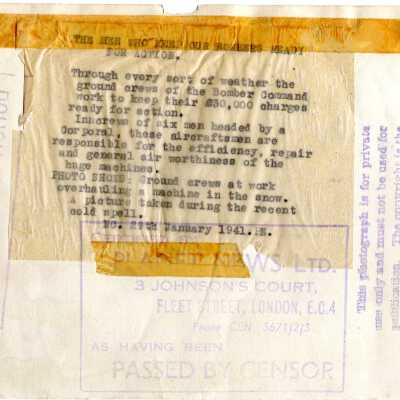 THE MEN WHO KEEP OUR BOMBERS READY
FOR ACTION.
Through every sort of weather the
ground crews of the Bomber Command
work to keep their £30,000 charges
ready for action.
In crews of six men headed by a
Corporal, these aircraftsmen are
responsible for the efficiency, repair
and general air worthiness of the
huge machines.
PHOTO SHOWS: Ground crews at work
overhauling a machine in the snow.
A picture taken during the recent
cold spell.
29th January 1941.
PLANET NEWS LTD.
3 JOHNSON'S COURT,
FLEET STREET, LONDON, E.C.4
Phone CEN 5671/2/3
AS HAVING BEEN
PASSED BY CENSOR
This photograph is for private
use only and must not be used for
publication. The copyright is the